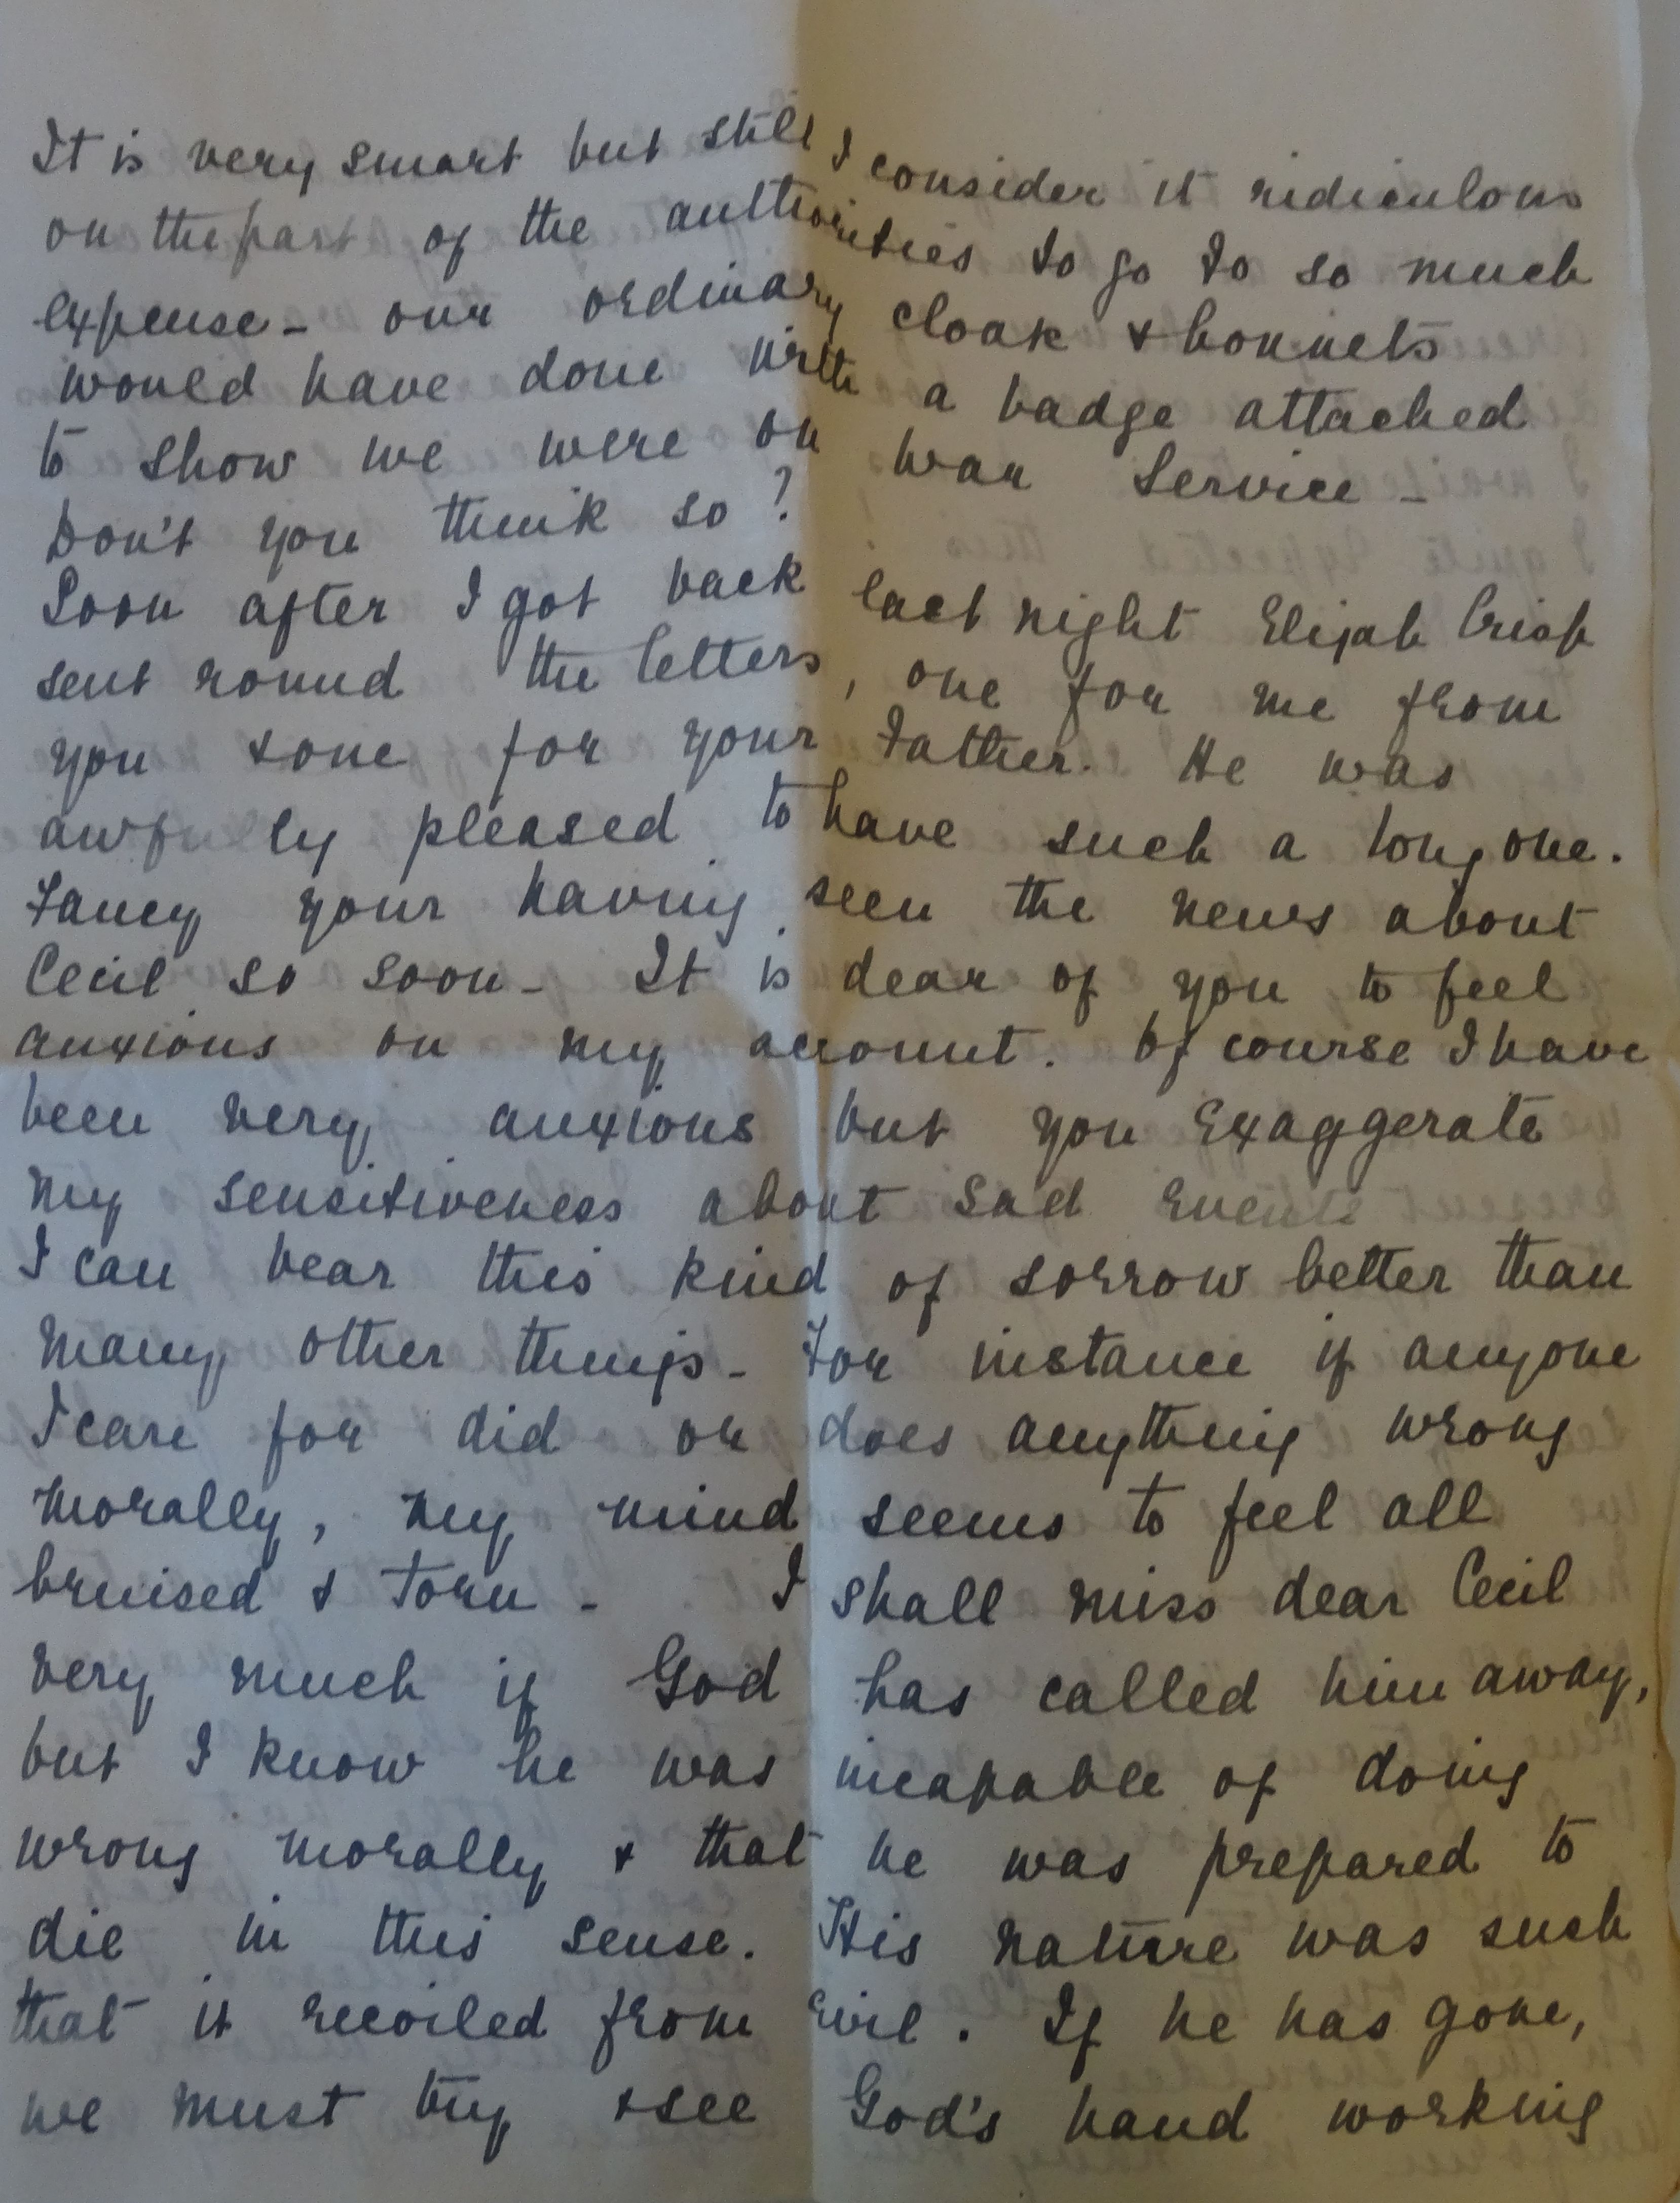 It is very smart but still I consider it ridiculous
on the part of the authorities to go to so much
expense - our ordinary cloak & bonnets
would have done with a badge attached
to show we were on war service -
Don't you think so?
Soon after I got back last night Elijah Crisp
sent round the letters, one for me from
you & one for your Father. He was
awfully pleased to have such a long one.
Fancy your having seen the news about
Cecil so soon - It is dear of you to feel
anxious on my account. Of course I have
been very anxious but you exaggerate
my sensitiveness about sad events
I can bear this kind of sorrow better than
many other things - For instance if anyone
I care for did or does anything wrong
morally, my mind seems to feel all
bruised & torn - I shall miss dear Cecil
very much if God has called him away,
but I know he was incapable of doing
wrong morally & that he was prepared to
die in this sense. His nature was such
that it recoiled from evil. If he has gone,
we must try & see God's hand working